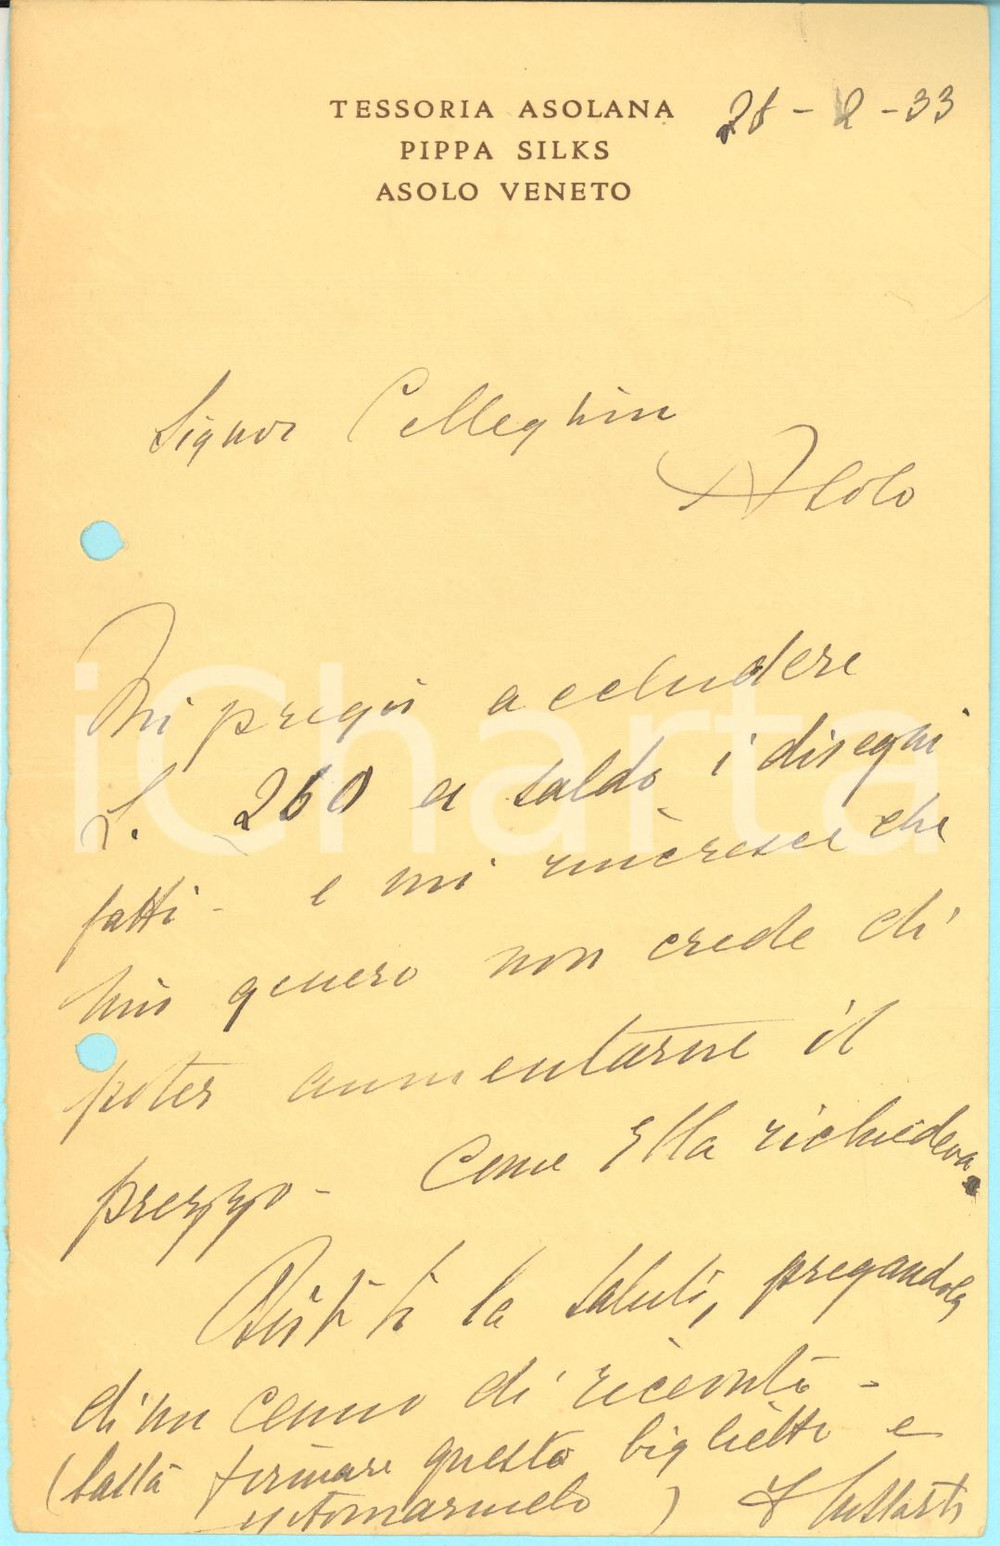 TESSORIA ASOLANA
PIPPA SILKS
ASOLO VENETO
28 - 2 - 33
Signor Celleghin
Asolo
Mi pregio accludere
L. 260 a saldo i disegni
fatti - e mi rincresce che
mio genero non crede di
poter aumentarne il
prezzo - Come Ella richiedeva.
la saluti, pregandola
di un cenno di ricevuta -
(basta firmare questo biglietto e
ritornarmelo)
iCharta